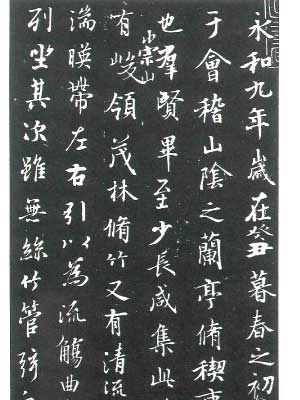 永和九年歲在癸丑暮春之初
于會稽山陰之蘭亭脩稧事
也羣賢畢至少長咸集此
崇山
有峻領茂林脩竹又有清流
湍暎帶左右引以為流觴曲
列坐其次雖無絲竹管弦